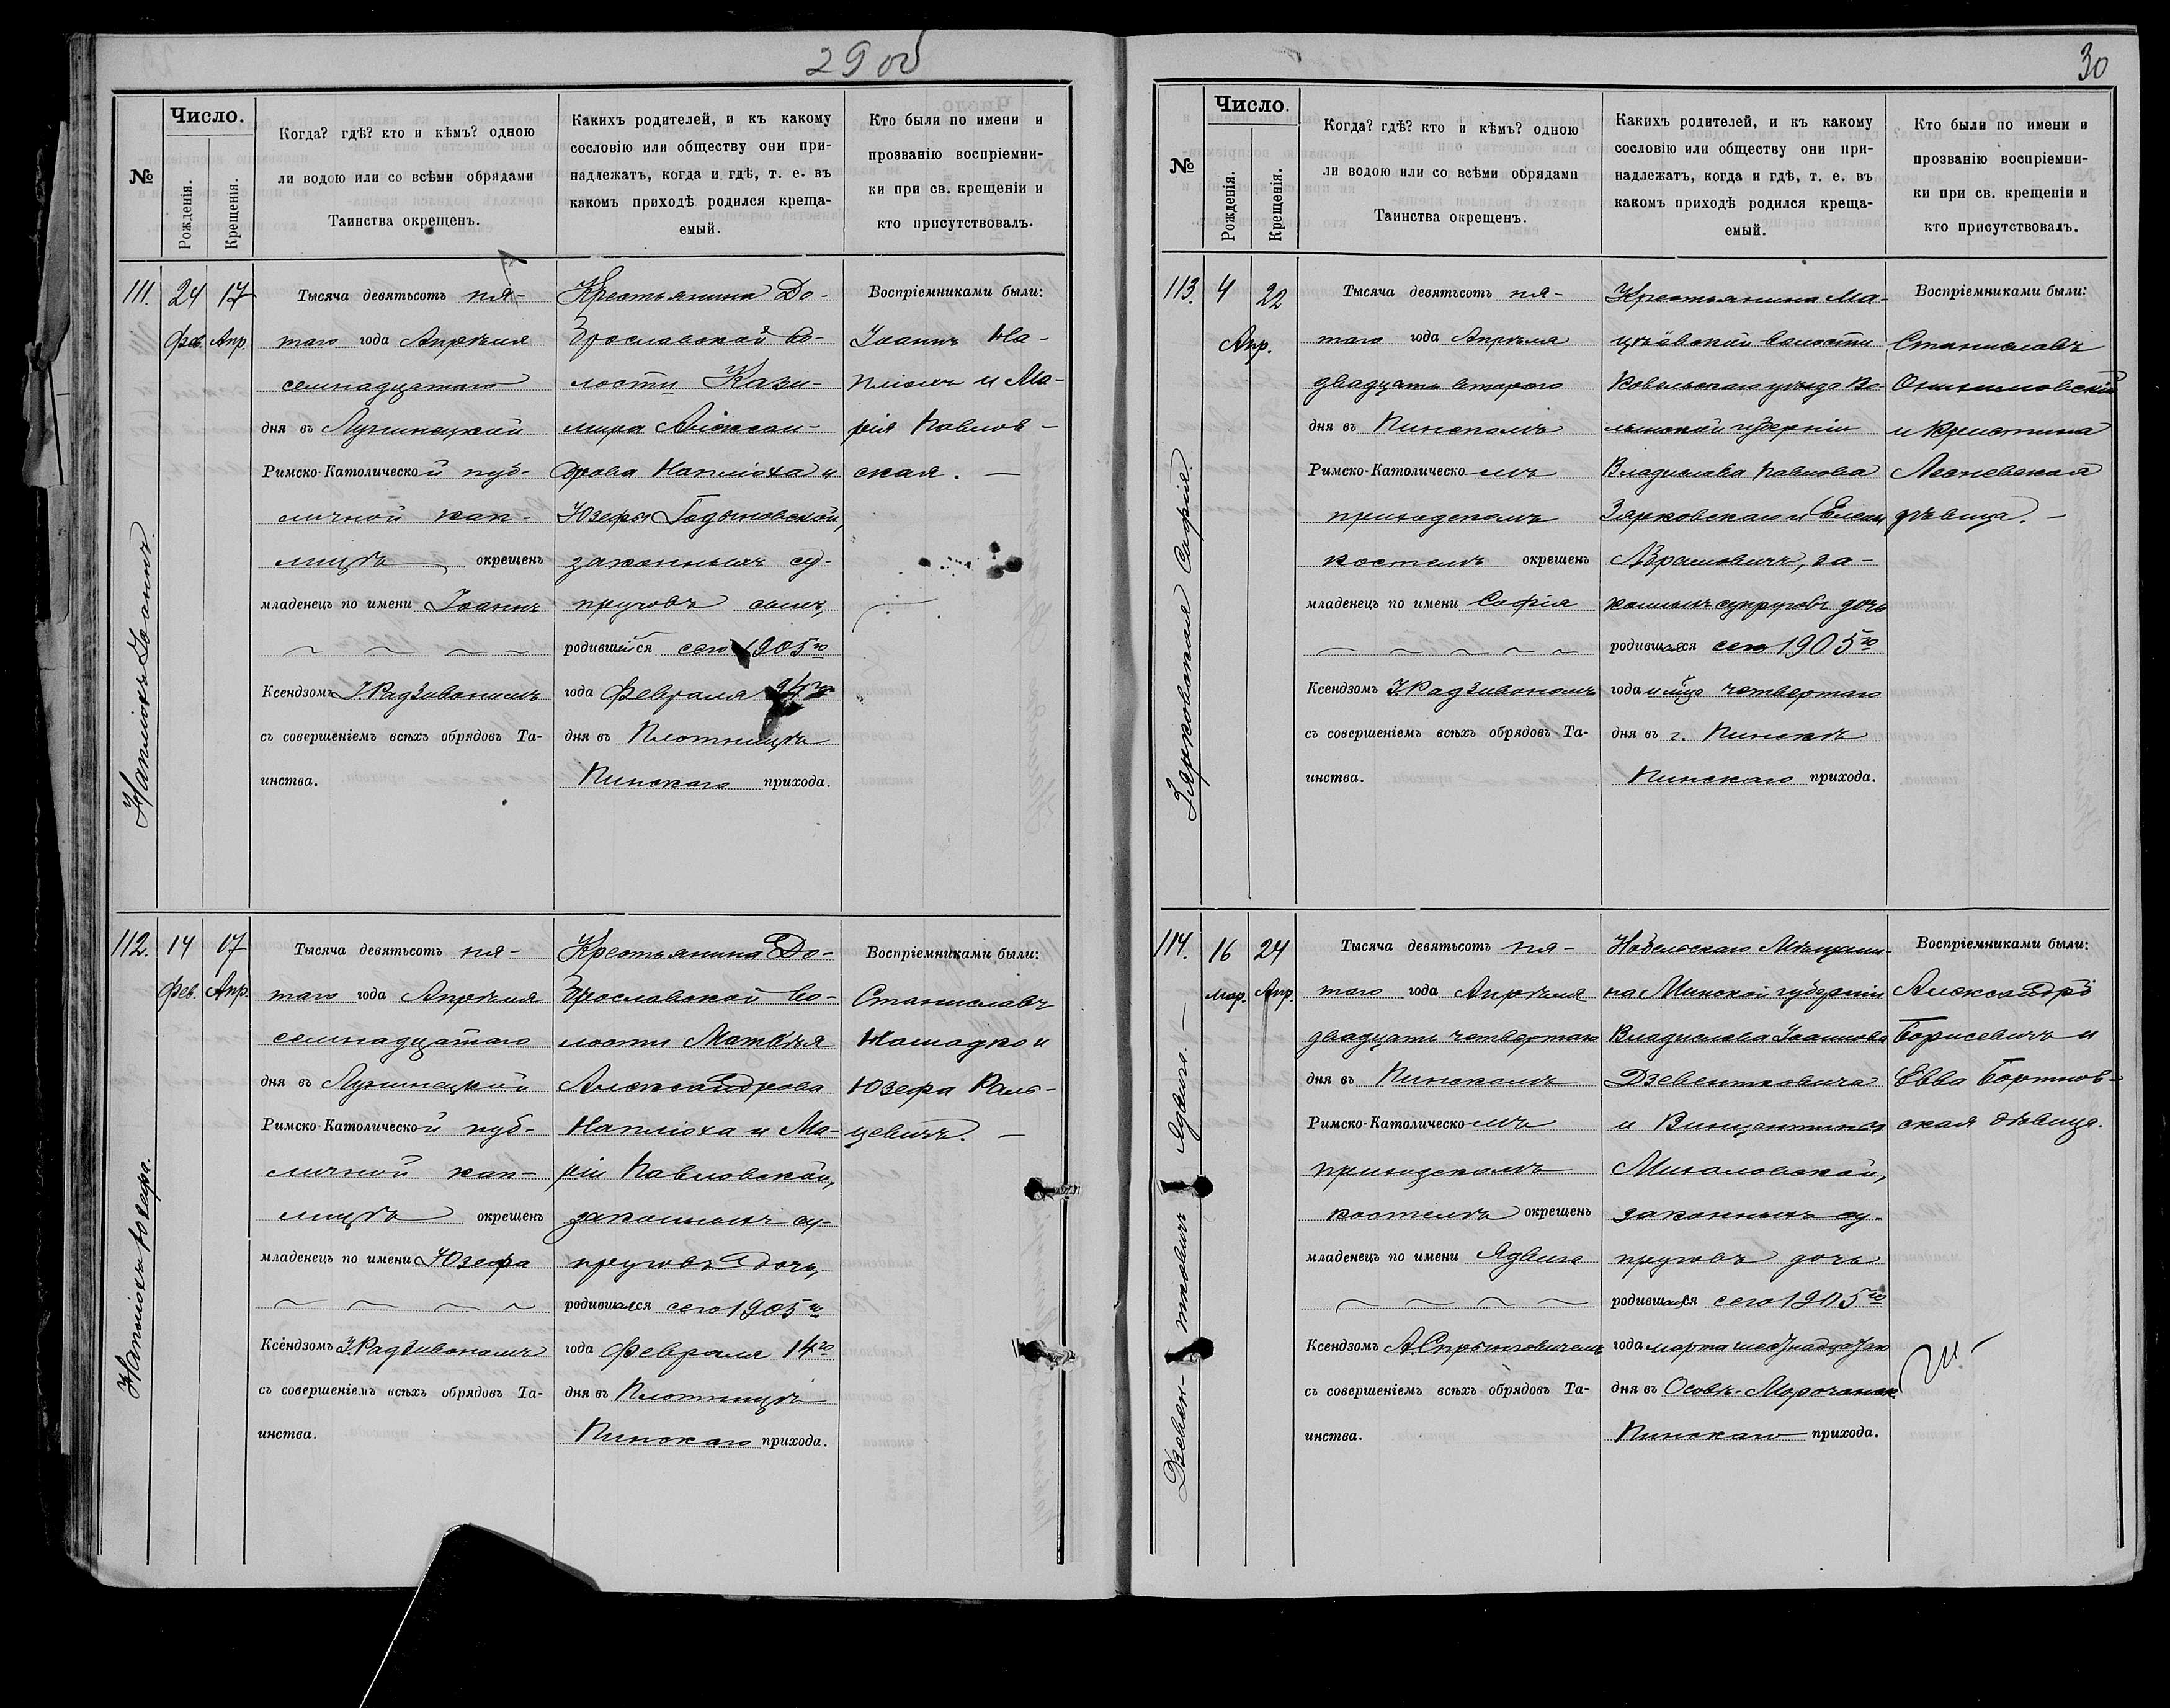 29 об
№
Число.
Рожденія.
Крещенія.
Когда? гдѣ? кто и кѣмъ? одною
ли водою или со всѣми обрядами
Таинства окрещенъ.
Какихъ родителей, и къ какому
сословію или обществу они при-
надлежатъ, когда и гдѣ, т. е. въ
какомъ приходѣ родился креща-
емый.
Кто были по имени и
прозванію воспріемни-
ки при св. крещеніи и
кто присутствовалъ.
111.
24
Фев.
17
Апр.
Наплюхъ Іоаннъ.
Тысяча девятьсотъ пя-
таго года Апрѣля
семнадцатаго
дня въ Лунинецкой
Римско-Католической пуб-
личной кап-
лицѣ окрещенъ
младенецъ по имени Іоаннъ
Ксендзомъ І. Радзивономъ
съ совершеніемъ всѣхъ обрядовъ Та-
инства.
Крестьянина До-
брославской во-
лости Кази-
мира Алексан-
дрова Наплюха и
Юзефы Годыновской,
законныхъ су-
пруговъ сынъ,
родившійся сего 1905 го
года Февраля 24 го
дня въ Плотницѣ
Пинскаго прихода.
Воспріемниками были:
Іоаннъ На-
плюхъ и Ма-
рія Павлов-
ская. —
112.
14
Фев.
17
Апр.
Наплюхъ Юзефа.
Тысяча девятьсотъ пя-
таго года Апрѣля
семнадцатаго
дня въ Лунинецкой
Римско-Католической пуб-
личной кап-
лицѣ окрещенъ
младенецъ по имени Юзефа
Ксендзомъ І. Радзивономъ
съ совершеніемъ всѣхъ обрядовъ Та-
инства.
Крестьянина До-
брославской во-
лости Матвѣя
Александрова
Наплюха и Ма-
ріи Павловской,
законныхъ су-
пруговъ дочь,
родившаяся сего 1905 го
года Февраля 14 го
дня въ Плотницѣ
Пинскаго прихода.
Воспріемниками были:
Станиславъ
и
Юзефа Раль-
цевичъ. —
30
№
Число.
Рожденія.
Крещенія.
Когда? гдѣ? кто и кѣмъ? одною
ли водою или со всѣми обрядами
Таинства окрещенъ.
Какихъ родителей, и къ какому
сословію или обществу они при-
надлежатъ, когда и гдѣ, т. е. въ
какомъ приходѣ родился креща-
емый.
Кто были по имени и
прозванію воспріемни-
ки при св. крещеніи и
кто присутствовалъ.
113.
4
22
Апр.
Зярковская Софія.
Тысяча девятьсотъ пя-
таго года Апрѣля
двадцать второго
дня въ Пинскомъ
Римско-Католическомъ
приходскомъ
костелѣ окрещенъ
младенецъ по имени Софія
Ксендзомъ І. Радзивономъ
съ совершеніемъ всѣхъ обрядовъ Та-
инства.
Крестьянина Ма-
цѣёвской волости
Ковельскаго уѣзда Во-
лынской губерніи
Владислава Павлова
Зярковскаго и Елены
Абрамовичъ, за-
конныхъ супруговъ дочь
родившаяся сего 1905 го
года четвертаго
дня въ г. Пинскѣ
Пинскаго прихода.
Воспріемниками были:
Станиславъ
и Кристина
Лесневская
дѣвица. —
114.
16
Мар.
24
Апр.
Дзевен- тковичъ Ядвига. —
Тысяча девятьсотъ пя-
таго года Апрѣля
двадцать четвертаго
дня въ Пинскомъ
Римско-Католическомъ
приходскомъ
костелѣ окрещенъ
младенецъ по имени Ядвига
Ксендзомъ А. Спрынговичемъ
съ совершеніемъ всѣхъ обрядовъ Та-
инства.
Нобельскаго Мѣщани-
на Минской губерніи
Владислава Іоаннова
Дзевентковича
и Винцентины
Михаловской,
законныхъ су-
пруговъ дочь
родившаяся сего 1905 го
года марта шестнадцатаго
дня въ Особъ-Морочанск.
Пинскаго прихода.
Воспріемниками были:
Александръ
Борисевичъ и
Евва Бортнов-
ская дѣвица.